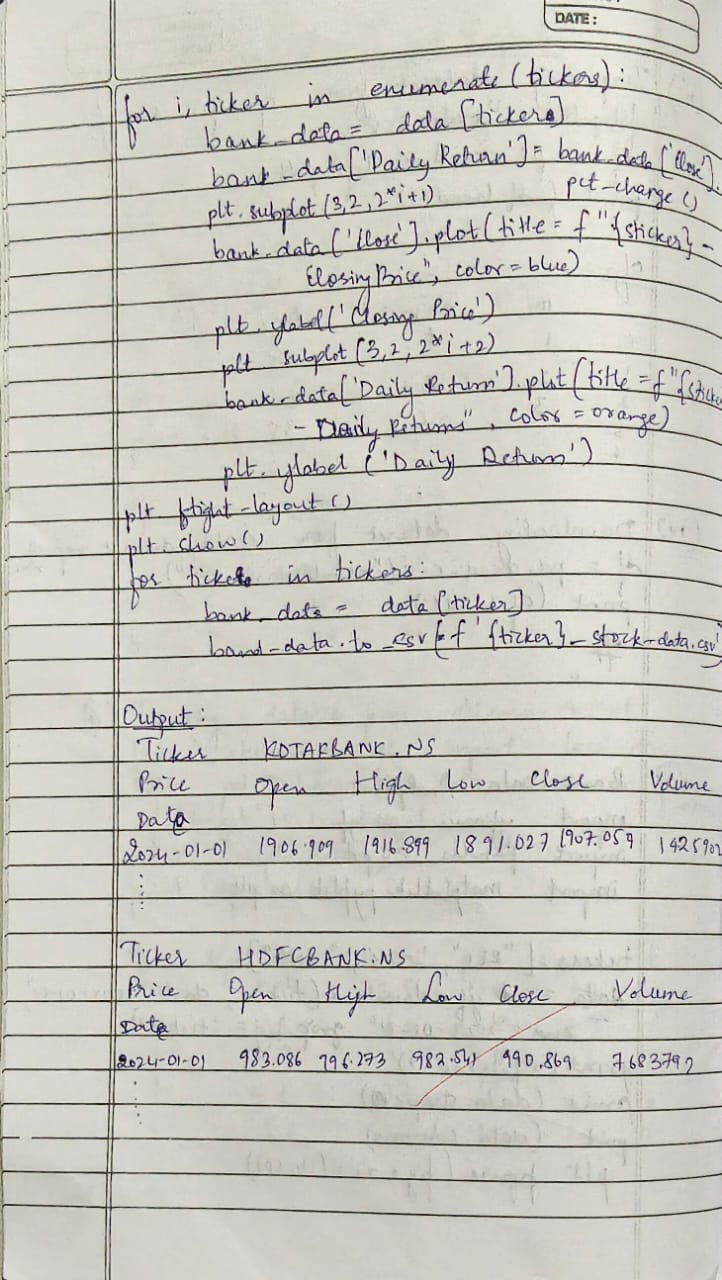 DATE :
for i, ticker in enumerate (tickers) :
bank_data = data [tickers]
bank_data ['Daily Return'] = bank_data ['Close'].
pct_change ()
plt. subplot (3,2,2*i+1)
bank_data ['Close'].plot (title = f"{sticker} -
Closing Price", color = blue)
plt. ylabel ('Closing Price')
plt subplot (3,2, 2*i +2)
bank_data ['Daily Return'].plot (title = f"{sticke
- Daily Returns", color = orange)
plt. ylabel ('Daily Return')
plt tight_layout ()
plt. show ()
for ticker in tickers:
bank_data = data [ticker]
band_data. to_csv (f' {ticker}_stock_data.csv'
Output :
Ticker KOTAKBANK .NS
Price Open High Low Close Volume
Date
2024-01-01 1906.909 1916.899 1891.027 1907.059 1425902
Ticker HDFCBANK.NS
Price Open High Low Close Volume
Date
2024-01-01 983.086 996.273 982.541 990.869 7683792